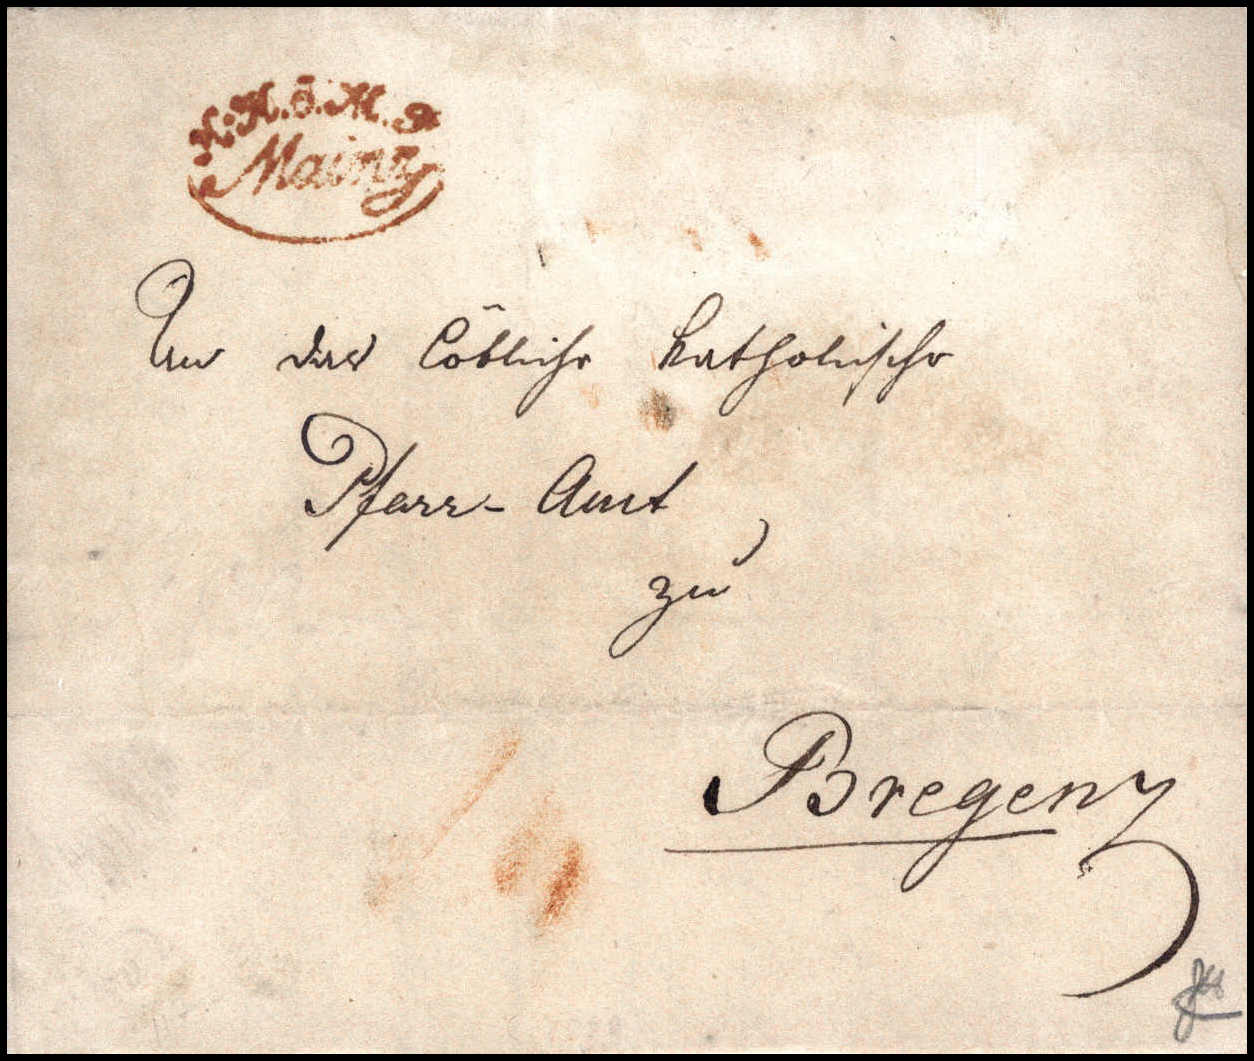 Mainz
An das Löbliche katholische
Pfarr-Amt
zu
Bregenz